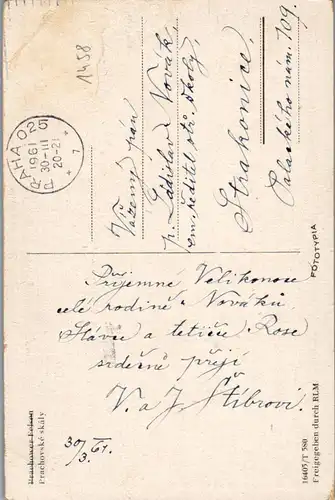 1458
PRAHA 025
1961
30-III
20-21
7
Vážený pán
p. Ladislav Novák,
em. ředitel stř. školy,
Strakonice,
Palackého nám. 109.
FOTOTYPIA
Příjemné Velikonoce
celé rodině Nováků
Slávce a tetičce Rose
srdečně přejí
V. a J. Štibrovi.
30/3. 61.
Prachovské skály
16405/T 580
Freigegeben durch RLM